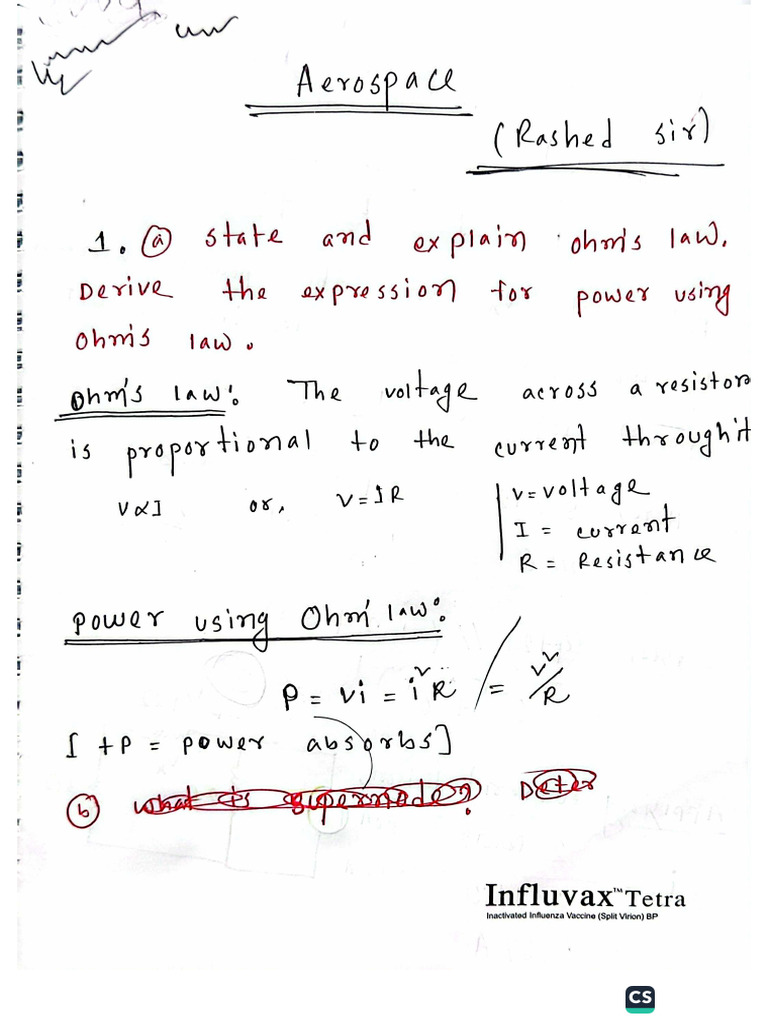 Aerospace
(Rashed sir)
1. (a) state and explain ohm's law.
Derive the expression for power using
Ohm's law.
Ohm's law: The voltage across a resistor
is proportional to the current through it
V∝I or, V=IR
V=voltage
I = current
R = Resistance
power using Ohm' law:
P = vi = i²R / = v²/R
[ +P = power absorbs]
(b) what is supermode? Deter
Influvax™ Tetra
Inactivated Influenza Vaccine (Split Virion) BP
CS